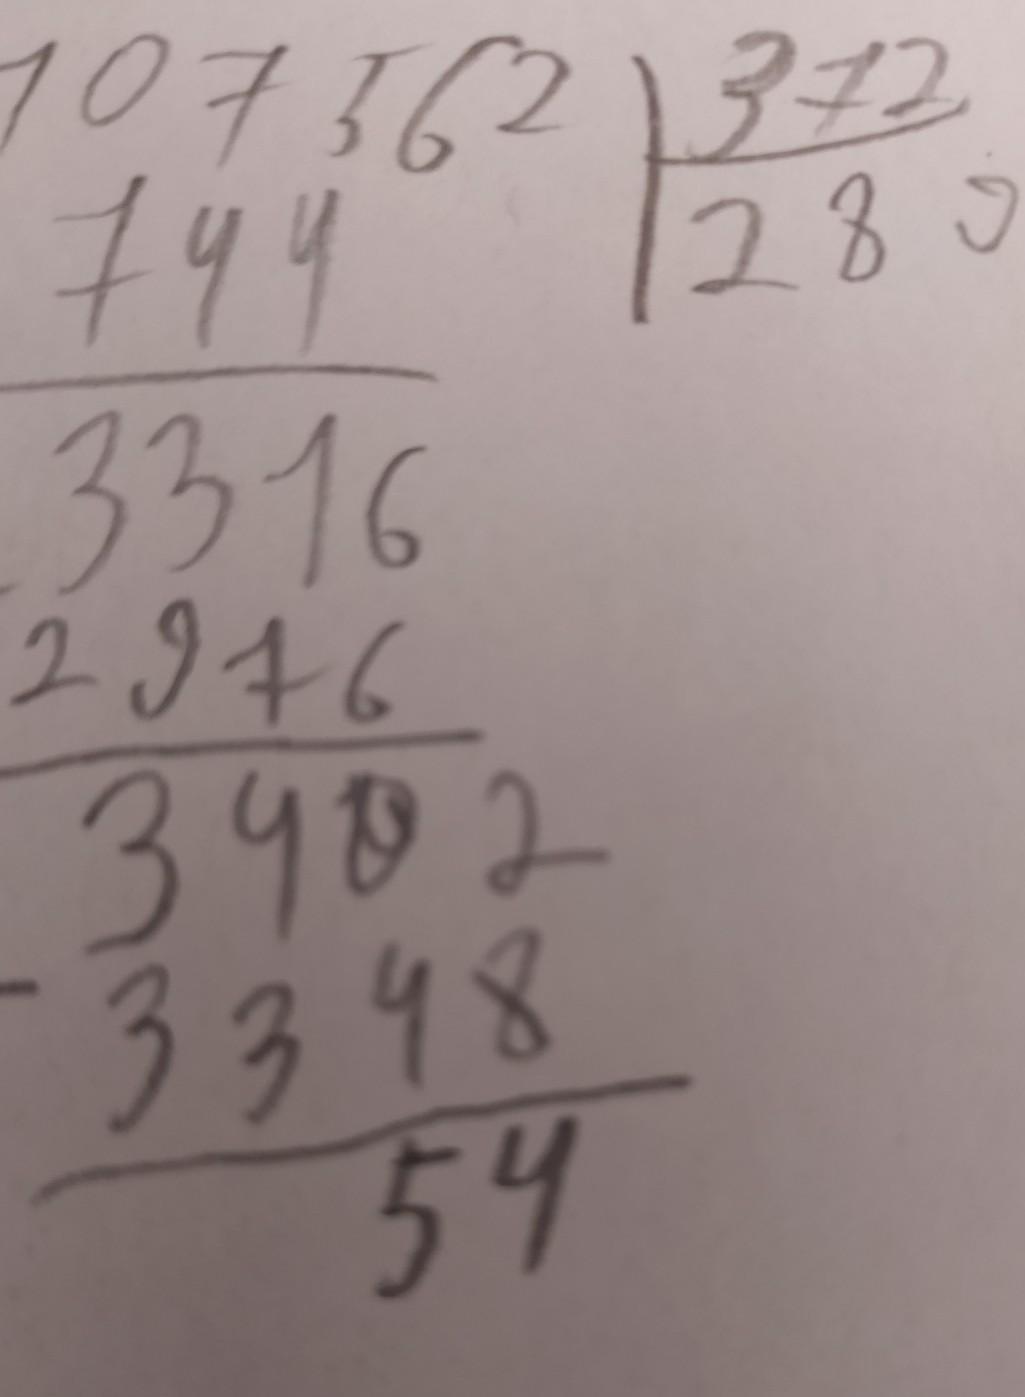 107562 372
744 289
3316
2976
3402
- 3348
54